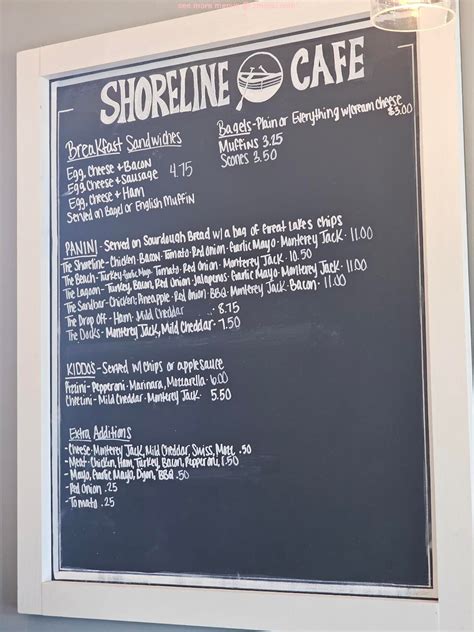 see more menus @
SHORELINE CAFE
Breakfast Sandwiches
Egg, Cheese + Bacon
Egg, Cheese + Sausage 4.75
Egg, Cheese + Ham
Served on Bagel or English Muffin
Bagels - Plain or Everything w/cream cheese
$3.00
Muffins 3.25
Scones 3.50
PANINI - Served on Sourdough Bread w/ a bag of Great Lakes chips
The Shoreline - Chicken · Bacon · Tomato · Red Onion · Garlic Mayo · Monterey Jack · 11.00
The Beach - Turkey · Garlic Mayo · Tomato · Red Onion · Monterey Jack · 10.50
The Lagoon - Turkey, Bacon, Red Onion · Jalapenos · Garlic Mayo · Monterey Jack · 11.00
The Sandbar - Chicken, Pineapple · Red Onion · BBQ · Monterey Jack · Bacon · 11.00
The Drop Off - Ham, Mild Cheddar · 8.75
The Docks - Monterey Jack, Mild Cheddar · 7.50
KIDDOS - Served w/ chips or applesauce
Pizzini - Pepperoni · Marinara, Mozzarella · 6.00
Cheezini - Mild Cheddar · Monterey Jack · 5.50
Extra Additions
- Cheese - Monterey Jack, Mild Cheddar, Swiss, Mozz .50
- Meat - Chicken, Ham, Turkey, Bacon, Pepperoni, 1.50
- Mayo, Garlic Mayo, Dijon, BBQ .50
- Red Onion .25
- Tomato .25